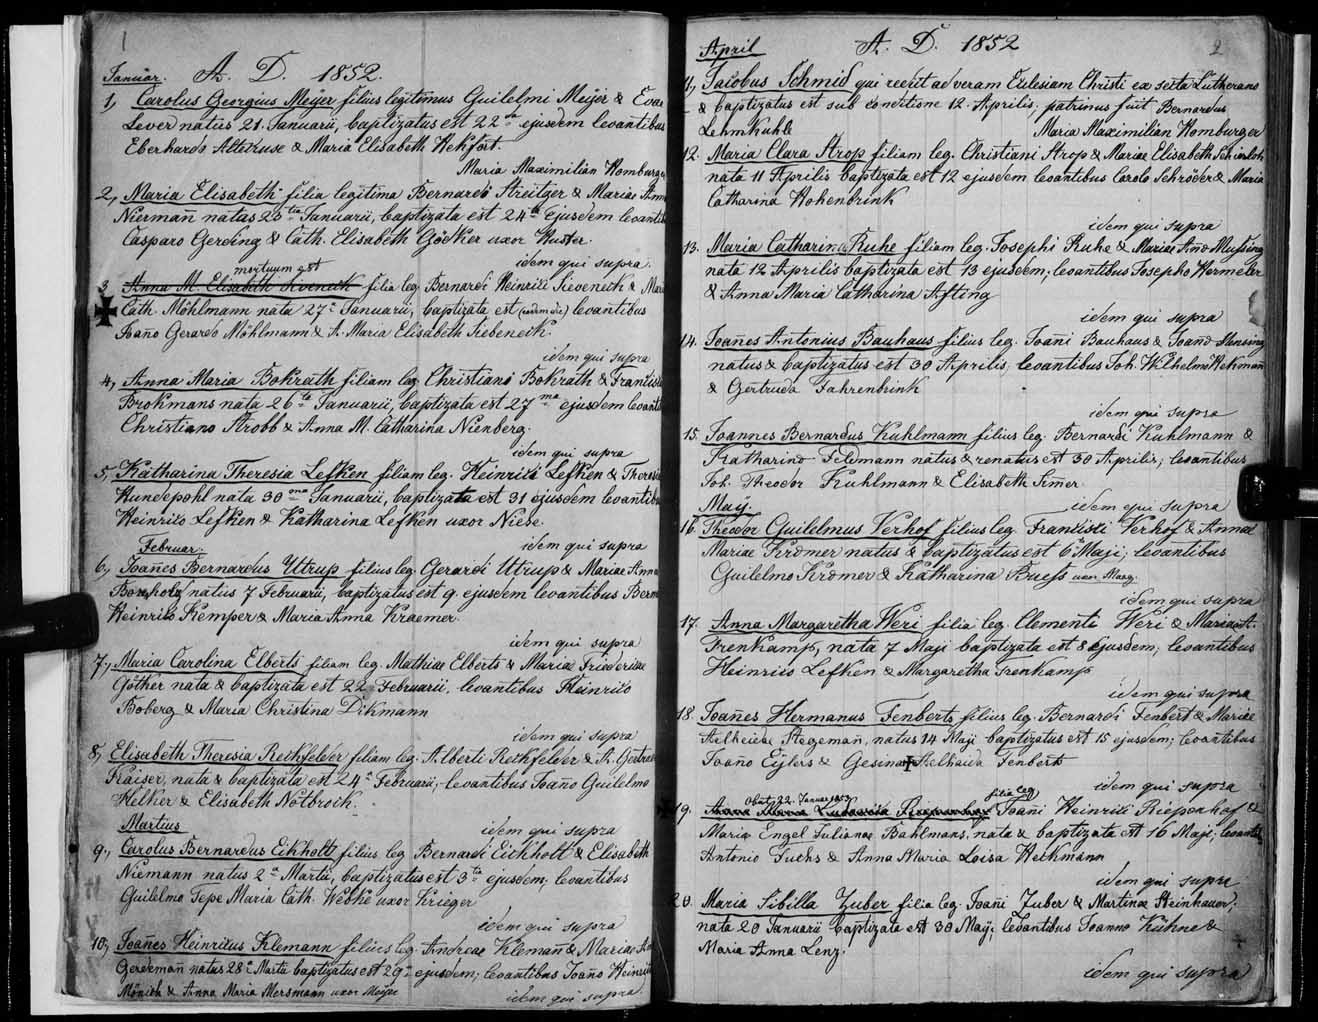 1
Januar. A. D. 1852.
1, Carolus Georgius Meÿer filius legitimus Guilelmi Meÿer & Evae
Lever natus 21. Januarii, baptizatus est 22 ejusdem levantibus
Eberhardo Altekruse & Maria Elisabeth Hekfort.
Maria Maximilian Homburger
2, Maria Elisabeth filia legitima Bernardi Streitger & Mariae Ann
Niermañ natas 23tia Januarii, baptizata est 24ta ejusdem levanti
Casparo Gerding & Cath. Elisabeth Gödker uxor Kuster.
idem qui supra.
mortuum est
3 Anna M. Elisabeth Sieveneck filia leg. Bernardi Heinriti Sieveneck & Mari
Cath. Möhlmann nata 27a Januarii, baptizata est (eodem die) levantibus
Joaño Gerardo Möhlmann & A. Maria Elisabeth Siebeneck.
idem qui supra
4, Anna Maria Bokrath filiam leg. Christiani Bokrath & Frantisca
Brokmans nata 26ta Januarii, baptizata est 27ma ejusdem levanti
Christiano Strobb & Anna M. Catharina Nienberg.
idem qui supra
5, Katharina Theresia Lefken filiam leg. Heinriti Lefken & Theresia
Hundepohl nata 30ma Januarii, baptizata est 31 ejusdem levantibu
Heinrito Lefken & Katharina Lefken uxor Niese.
Februar. idem qui supra
6, Joañes Bernardus Uttrup filius leg. Gerardi Uttrup & Mariae Anna
natus 7 Februarii, baptizatus est 9. ejusdem levantibus Bern
Heinrito Kemper & Maria Anna Kraemer.
idem qui supra
7, Maria Carolina Elberts filiam leg. Mathiae Elberts & Mariae Friedericae
Göther nata & baptizata est 22 Februarii, levantibus Heinrito
Boberg & Maria Christina Dikmann
idem qui supra
8, Elisabeth Theresia Rethfelder filiam leg. Alberti Rethfelder & A. Gertrud
Kaiser, nata & baptizata est 24a Februarii; levantibus Joaño Guilelmo
Helker & Elisabeth Notbrock.
Martius idem qui supra
9, Carolus Bernardus Eikholt filius leg. Bernardi Eickholt & Elisabeth
Niemann natus 2a Martii, baptizatus est 3tia ejusdem; levantibus
Guilelmo Tepe Maria Cath. Webke uxor Krieger
idem qui supra
10, Joañes Heinritus Klemann filius leg. Andreae Klemañ & Mariae An
Gerdemañ natus 28a Martii baptizatus est 29a ejusdem; levantibus Joaño Heinrito
Mönich & Anna Maria Mersmann uxor Meÿer
idem qui supra.
2
April A. D. 1852
11, Jacobus Schmid qui rediit ad veram Eclesiam Christi ex secta Lutherano
& baptizatus est sub conditione 12. Aprilis, patrinus fuit Bernardus
Lehmkuhle Maria Maximilian Homburger
12. Maria Clara Strop filiam leg. Christiani Strop & Mariae Elisabeth
nata 11 Aprilis baptizata est 12 ejusdem levantibus Carolo Schröder & Maria
Catharina Hohenbrink
idem qui supra
13. Maria Catharina Ruhe filiam leg. Josephi Ruhe & Mariae Año
nata 12 Aprilis baptizata est 13 ejusdem; levantibus Josepho Hermeler
& Anna Maria Catharina Afting
idem qui supra
14. Joañes Antonius Bauhaus filius leg. Joañi Bauhaus & Joañ Hensing
natus & baptizatus est 30 Aprilis, levantibus Joh. Wilhelmo Hekmañ
& Gertruda Fahrenbrink
idem qui supra
15. Joannes Bernardus Kuhlmann filius leg. Bernardi Kuhlmann &
Katharina Feldmann natus & renatus est 30 Aprilis; levantibus
Joh. Theodor Kuhlmann & Elisabeth Simer.
Maÿ. idem qui supra
16. Theodor Guilelmus Verhof filius leg. Frantisti Verhof & Annae
Mariae Kromer natus & baptizatus est 6ta Maji; levantibus
Guilelmo Kromer & Katharina Buess uxor Marg.
idem qui supra
17. Anna Margaretha Weri filia leg. Clementi Weri & Maria A.
Frenkamp, nata 7 Maji baptizata est 8 ejusdem; levantibus
Heinrito Lefken & Margaretha Frenkamp
idem qui supra
18. Joañes Hermanus Fenberts filius leg. Bernardi Fenbert & Mariae
Aelheidae Stegemañ, natus 14 Maji baptizatus est 15 ejusdem; levantibus
Joaño Eÿlers & Gesina Aelhaida Fenberts
idem qui supra
Obiit 22. Januar 1853 filia leg
19. Anna Maria Joañi Heinriti Riepenhof &
Mariae Engel Julianae Bahlmans, nata & baptizata est 16 Maji; levanti
Antonio Fuchs & Anna Maria Loisa Heckmann
idem qui supra
20. Maria Sibilla Zuber filia leg. Joañi Zuber & Martinae Steinhauer;
nata 20 Januarii baptizata est 30 Maÿ; levantibus Joanno Kühne &
Maria Anna Lenz.
idem qui supra